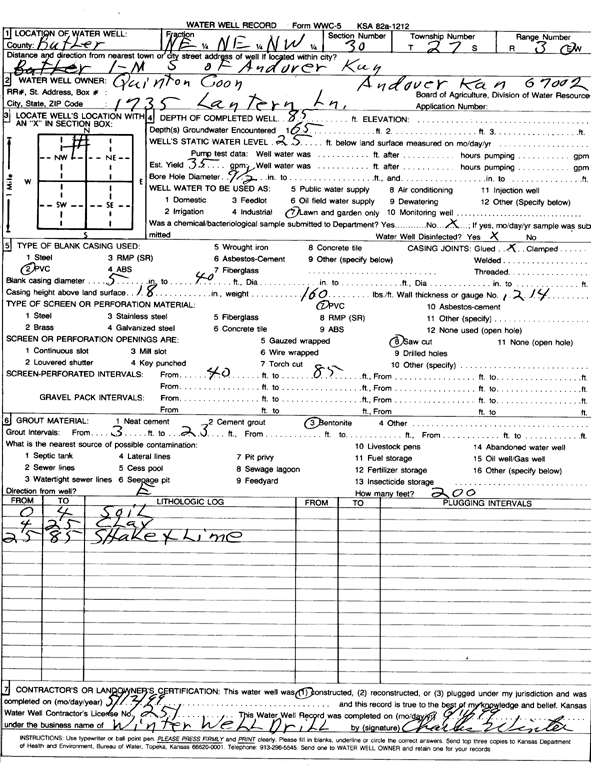 WATER WELL RECORD Form WWC-5 KSA 82a-1212
1 LOCATION OF WATER WELL: Fraction Section Number Township Number Range Number
County: Butler NE ¼ NE ¼ NW ¼ 30 T 27 S R 3 E/W
Distance and direction from nearest town or city street address of well if located within city?
Butler 1-M S of Andover Kan
2 WATER WELL OWNER: Quinton Coon Andover Kan 67002
RR#, St. Address, Box # : Board of Agriculture, Division of Water Resource
City, State, ZIP Code : 1735 Lantern Ln. Application Number:
3 LOCATE WELL'S LOCATION WITH AN "X" IN SECTION BOX:
N
NW NE
W E
SW SE
S
1 Mile
4 DEPTH OF COMPLETED WELL. 85 ft. ELEVATION:
Depth(s) Groundwater Encountered 1. 65 ft. 2. ft. 3. ft.
WELL'S STATIC WATER LEVEL 25 ft. below land surface measured on mo/day/yr
Pump test data: Well water was ft. after hours pumping gpm
Est. Yield 35 gpm; Well water was ft. after hours pumping gpm
Bore Hole Diameter 9 1/2 in. to ft., and in. to ft.
WELL WATER TO BE USED AS: 5 Public water supply 8 Air conditioning 11 Injection well
1 Domestic 3 Feedlot 6 Oil field water supply 9 Dewatering 12 Other (Specify below)
2 Irrigation 4 Industrial 7 Lawn and garden only 10 Monitoring well
Was a chemical/bacteriological sample submitted to Department? Yes No X ; If yes, mo/day/yr sample was sub
mitted Water Well Disinfected? Yes X No
5 TYPE OF BLANK CASING USED: 5 Wrought iron 8 Concrete tile CASING JOINTS: Glued X Clamped
1 Steel 3 RMP (SR) 6 Asbestos-Cement 9 Other (specify below) Welded
2 PVC 4 ABS 7 Fiberglass Threaded
Blank casing diameter 5 in. to 40 ft., Dia in. to ft., Dia in. to ft.
Casing height above land surface 18 in., weight 160 lbs./ft. Wall thickness or gauge No. .214
TYPE OF SCREEN OR PERFORATION MATERIAL: 7 PVC 10 Asbestos-cement
1 Steel 3 Stainless steel 5 Fiberglass 8 RMP (SR) 11 Other (specify)
2 Brass 4 Galvanized steel 6 Concrete tile 9 ABS 12 None used (open hole)
SCREEN OR PERFORATION OPENINGS ARE: 5 Gauzed wrapped 8 Saw cut 11 None (open hole)
1 Continuous slot 3 Mill slot 6 Wire wrapped 9 Drilled holes
2 Louvered shutter 4 Key punched 7 Torch cut 10 Other (specify)
SCREEN-PERFORATED INTERVALS: From 40 ft. to 85 ft., From ft. to ft.
From ft. to ft., From ft. to ft.
GRAVEL PACK INTERVALS: From ft. to ft., From ft. to ft.
From ft. to ft., From ft. to ft.
6 GROUT MATERIAL: 1 Neat cement 2 Cement grout 3 Bentonite 4 Other
Grout Intervals: From 3 ft. to 23 ft., From ft. to ft., From ft. to ft.
What is the nearest source of possible contamination: 10 Livestock pens 14 Abandoned water well
1 Septic tank 4 Lateral lines 7 Pit privy 11 Fuel storage 15 Oil well/Gas well
2 Sewer lines 5 Cess pool 8 Sewage lagoon 12 Fertilizer storage 16 Other (specify below)
3 Watertight sewer lines 6 Seepage pit 9 Feedyard 13 Insecticide storage
Direction from well? E How many feet? 200
FROM TO LITHOLOGIC LOG FROM TO PLUGGING INTERVALS
0 4 Soil
4 25 Clay
25 85 Shake x Lime
7 CONTRACTOR'S OR LANDOWNER'S CERTIFICATION: This water well was (1) constructed, (2) reconstructed, or (3) plugged under my jurisdiction and was
completed on (mo/day/year) and this record is true to the best of my knowledge and belief. Kansas
Water Well Contractor's License No. 251 This Water Well Record was completed on (mo/day/yr)
under the business name of Winter Well Drill by (signature) Charles Winter
INSTRUCTIONS: Use typewriter or ball point pen. PLEASE PRESS FIRMLY and PRINT clearly. Please fill in blanks, underline or circle the correct answers. Send top three copies to Kansas Department
of Health and Environment, Bureau of Water, Topeka, Kansas 66620-0001. Telephone: 913-296-5545. Send one to WATER WELL OWNER and retain one for your records